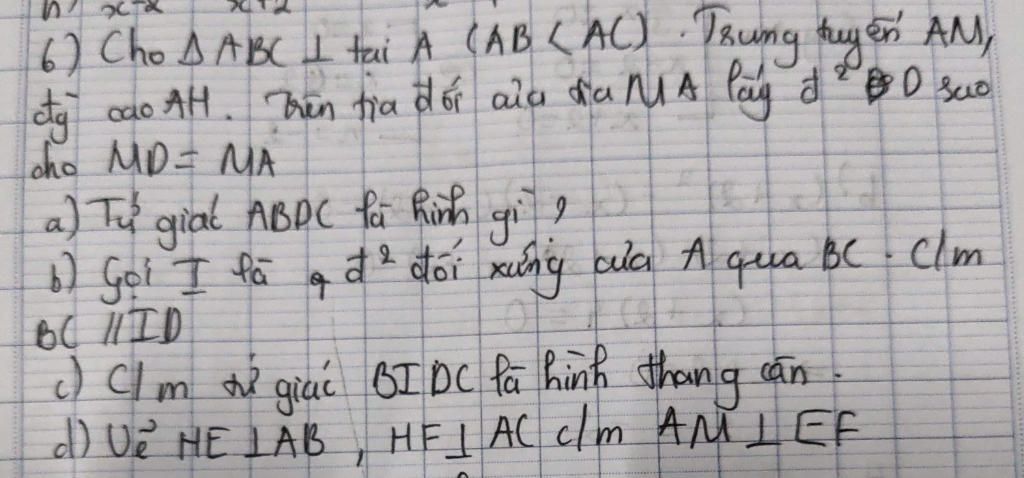 6) Cho Δ ABC ⊥ tại A (AB < AC). Trung tuyến AM,
đg cao AH. Trên tia đối của tia MA lấy đ² D sao
cho MD = MA
a) Tứ giác ABDC là hình gì ?
b) Gọi I là đ² đối xứng của A qua BC. C/m
BC // ID
c) C/m tứ giác BIDC là hình thang cân.
d) Vẽ HE ⊥ AB, HF ⊥ AC c/m AM ⊥ EF